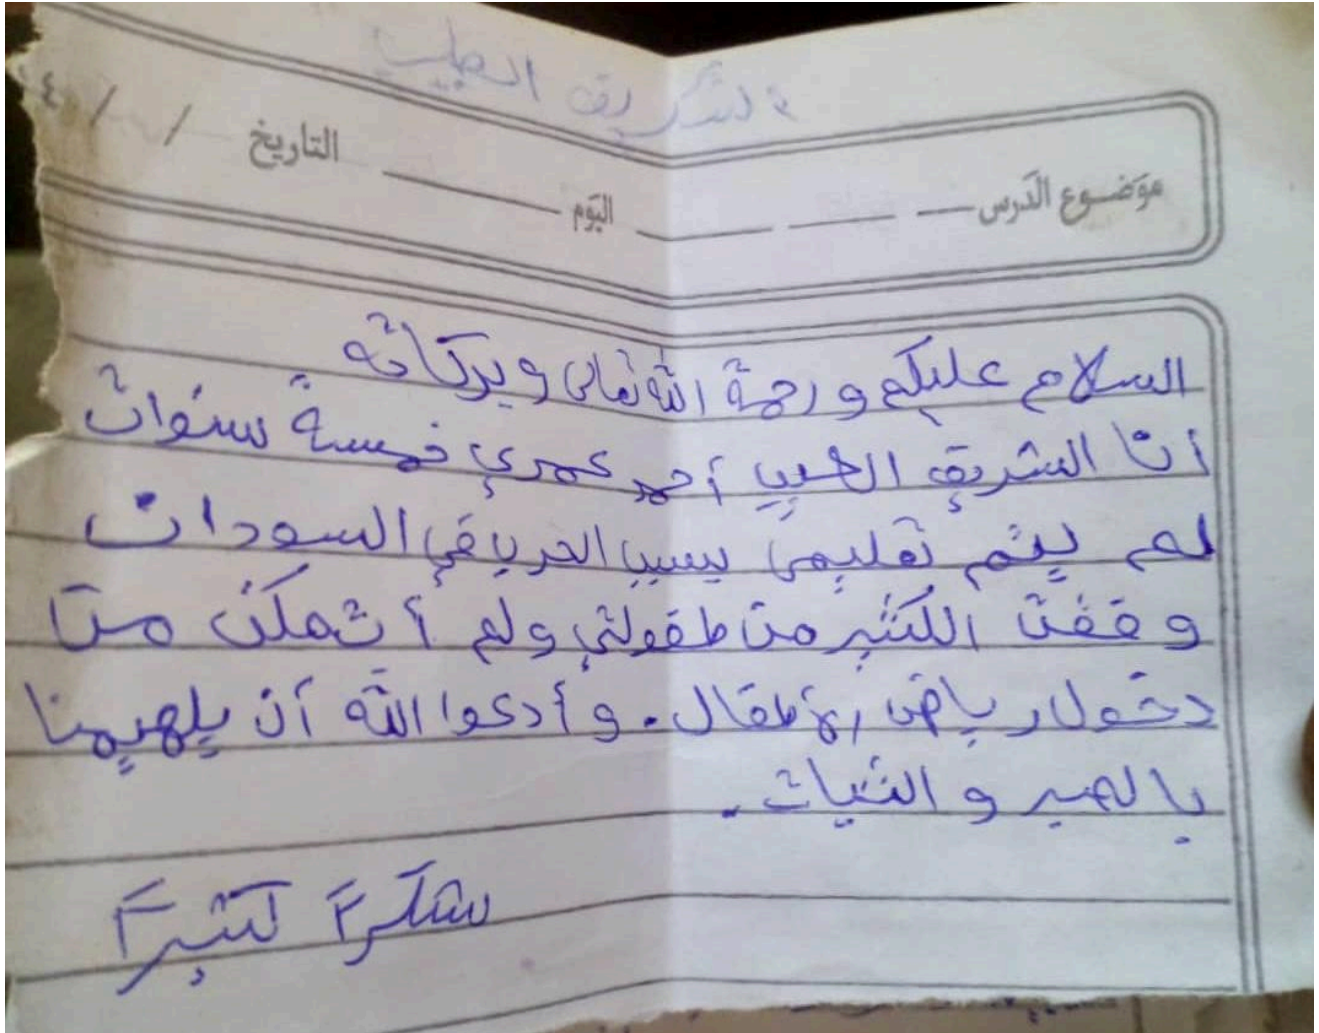 الشريف الطيب
موضوع الدرس اليوم التاريخ / /
السلام عليكم ورحمة الله تعالى وبركاته
أنا الشريف الطيب أحمد عمري خمسة سنوات
لم يتم تعليمي بسبب الحرب في السودان
وقفت الكثير من طفولتي ولم أتمكن من
دخول رياض الأطفال. وأدعوا الله أن يلهيمنا
بالصبر والثبات.
شكراً كثيراً